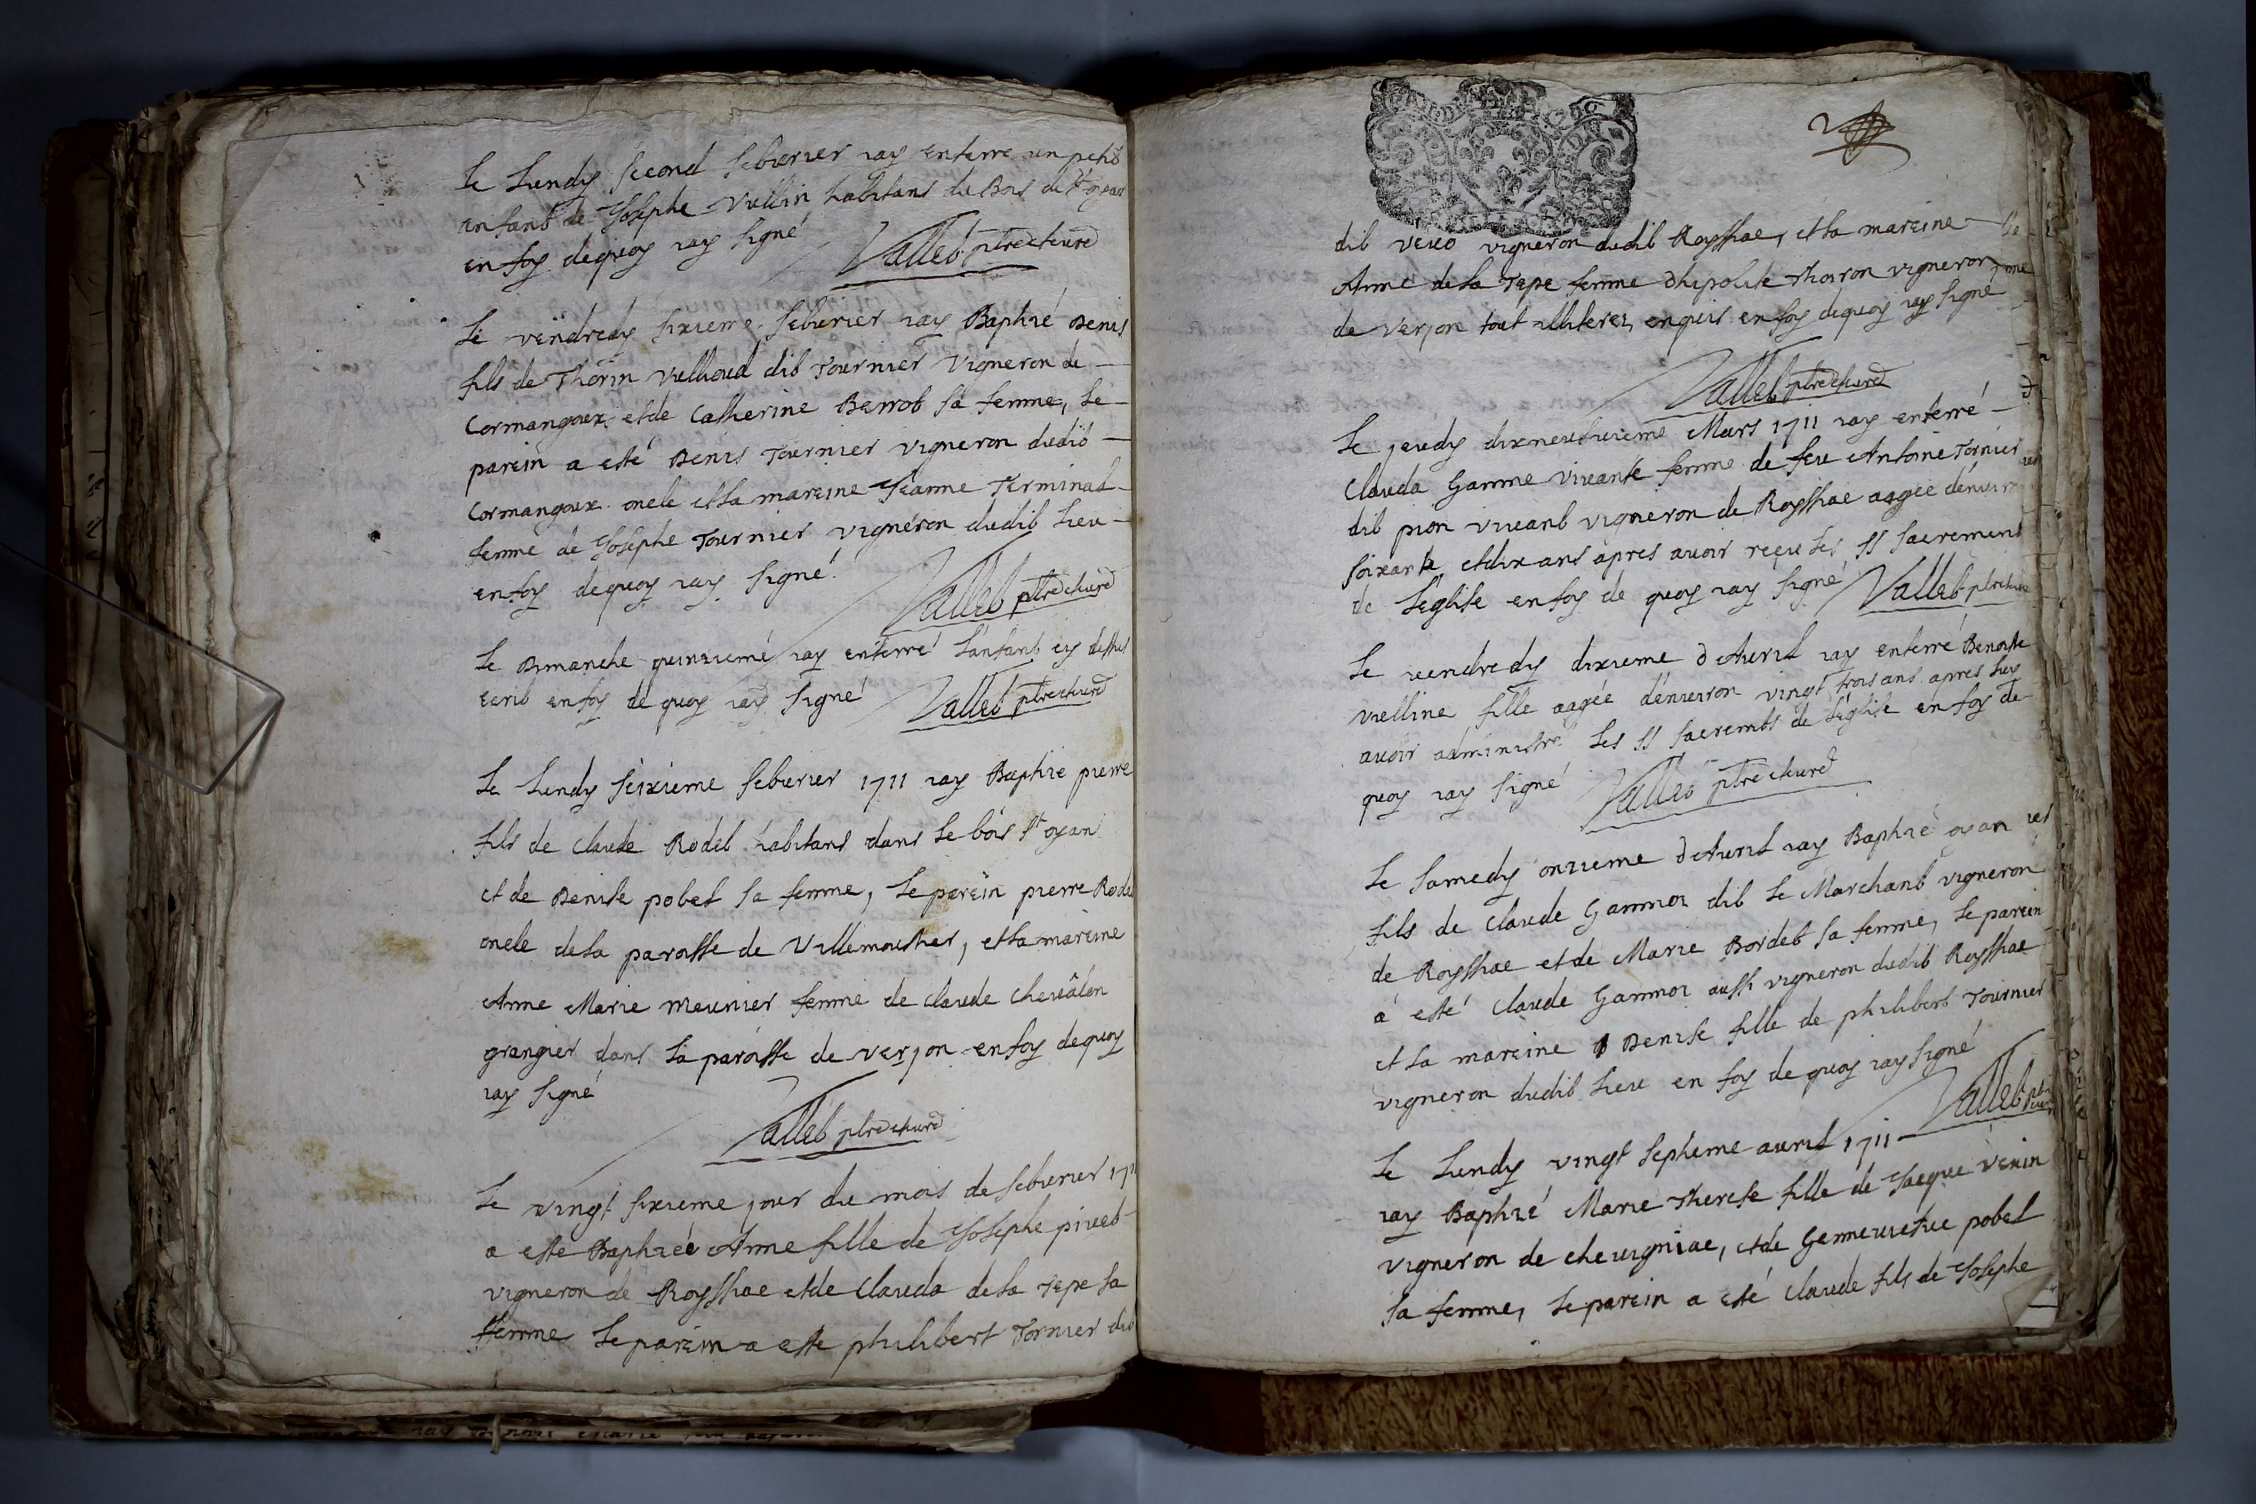 Le Lundy second feburier iay enterre un petit
enfant de Josephe Vullin habitans du Bois de St oyan
en foy dequoy iay signé
Vallet ptre & curé
Le vendredy sixieme feburier iay Baptizé Denis
fils de Thorin Vullioud dit Tournier Vigneron de
Cormangoux et de Catherine Berrot sa femme, Le
parein a esté Denis Tournier vigneron dudit
Cormangoux oncle et la mareine Jeanne Terminat
femme de Josephe Tournier vigneron dudit Lieu
en foy dequoy iay signé
Vallet ptre & curé
Le Dimanche quinzieme iay enterré L'enfant cy dessus
ecrit en foy de quoy iay signé
Vallet ptre & curé
Le Lundy seizieme feburier 1711 iay Baptizé pierre
fils de Claude Rodet habitans dans Le bois St oyan
et de Denise pobel sa femme, Le parein pierre Rodet
oncle de la paroisse de Villemoutier, et la mareine
Anne Marie meunier femme de Claude chevâlon
grangier dans La paroisse de verjon en foy dequoy
iay signé
Vallet ptre & curé
Le vingt sixieme jour du mois de feburier 1711
a esté Baptizée Anne fille de Josephe pivet
vigneron de Royssiac et de Clauda de la Tepe sa
femme Le parein a esté philibert Tornier dudit
dit veuo vigneron dudit Royssiac, et la mareine
Anne de la Tepe femme dhipolite Thoiron vigneron
de Verjon tout illiterez enquis en foy dequoy iay signé
Vallet ptre & curé
Le jeudy dixneufvieme Mars 1711 iay enterré
Clauda Gamme vivante femme de feu Antoine Tornier
dit pion vivant vigneron de Royssiac aagée dénviron
soixante et dix ans apres avoir reçeu Les SS sacrements
de L'église en foy de quoy iay signé Vallet ptre & curé
Le vendredy dixieme d'Avril iay enterré Benoite
vielline fille aagée dénviron vingt trois ans apres luy
avoir administré Les SS sacremts de L'église en foy de
quoy iay signé
Vallet ptre & curé
Le samedy onzieme d'Avril iay Baptizé oyan
fils de Claude Gammoz dit Le Marchant vigneron
de Royssiac et de Marie Bordet sa femme, Le parein
a esté Claude Gammoz aussi vigneron dudit Royssiac
et la mareine Denise fille de philibert Tournier
vigneron dudit Lieu en foy de quoy iay signé
Vallet ptre & curé
Le Lundy vingt septieme avril 1711
iay Baptizé Marie Therese fille de Jacque vènin
vigneron de chevigniac, et de Gennevieve pobel
sa femme, Le parein a esté Claude fils de Josephe